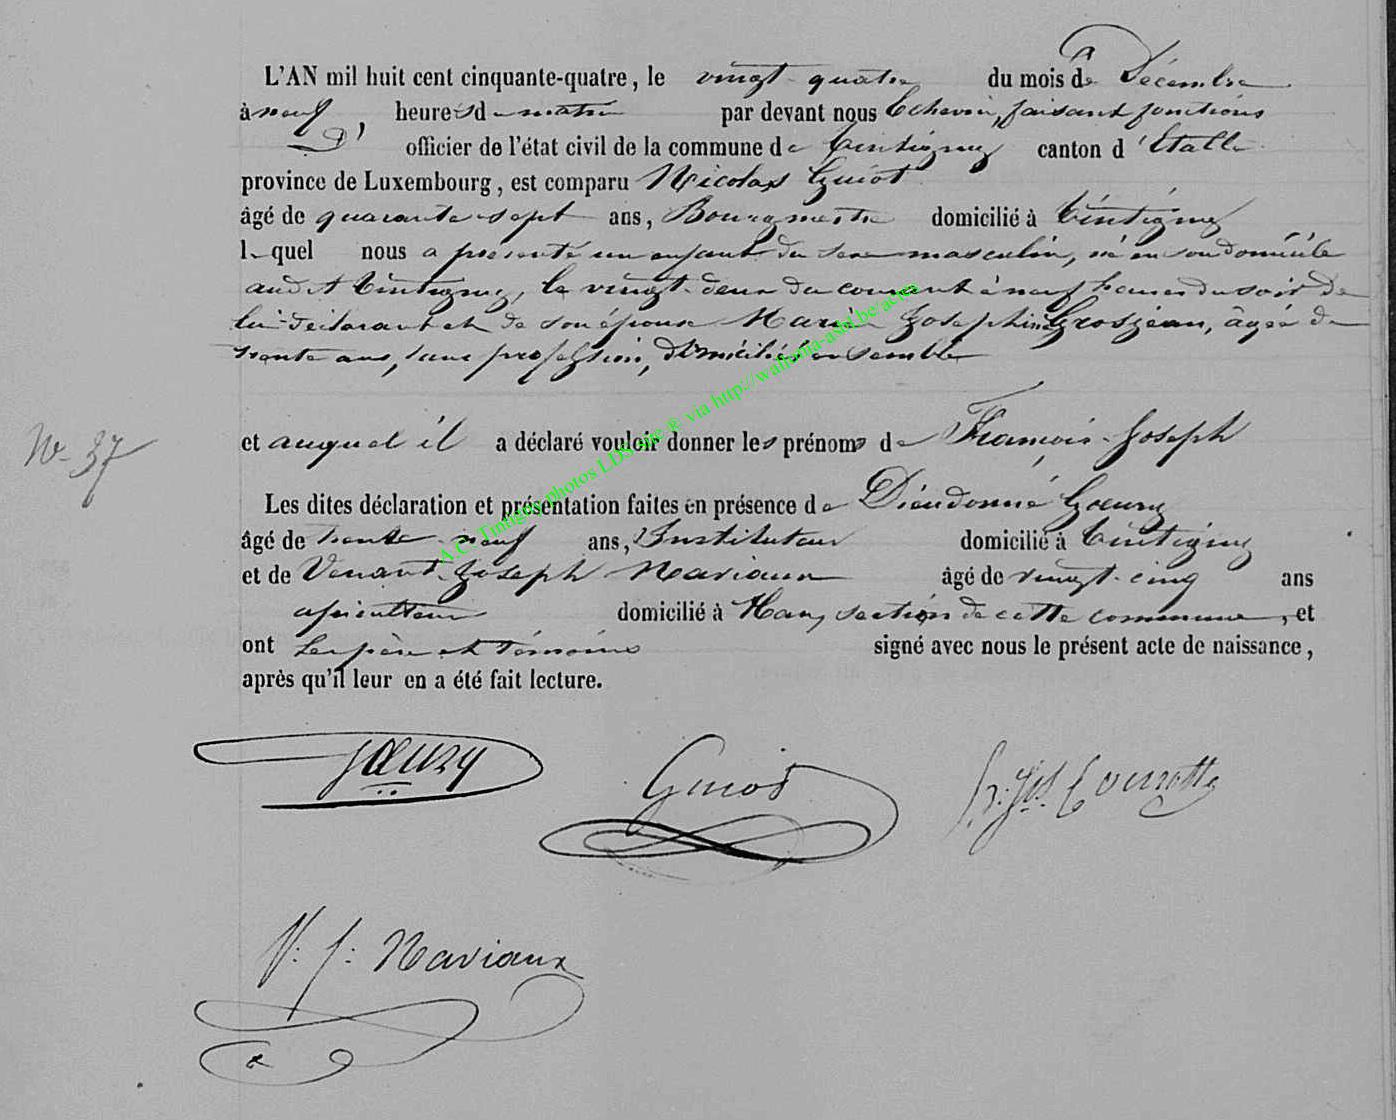 L'AN mil huit cent cinquante-quatre, le vingt-quatre du mois de Décembre
à neuf heures du matin par devant nous Echevin, faisant fonctions
D' officier de l'état civil de la commune de Tintigny canton d'Etalle
province de Luxembourg, est comparu Nicolas Guiot
âgé de quarante-sept ans, Bourgmestre domicilié à Tintigny
lequel nous a présenté un enfant du sexe masculin, né en son domicile
audit Tintigny, le vingt-deux du courant à neuf heures du soir de
lui déclarant et de son épouse Marie Josephine Grosjean, âgée de
trente ans, sans profession, domiciliés ensemble
N- 37
et auquel il a déclaré vouloir donner les prénoms de François-Joseph
Les dites déclaration et présentation faites en présence de Dieudonné Goeury
âgé de trente-neuf ans, Instituteur domicilié à Tintigny
et de Venant-Joseph Naviaux âgé de vingt-cinq ans
domicilié à Han, section de cette commune, et
ont les père et témoins signé avec nous le présent acte de naissance,
après qu'il leur en a été fait lecture.
Goeury
Guiot
V: J: Naviaux
A.C. Tintigny photos LDS site ® via http://wallonia-asbl.be/actes